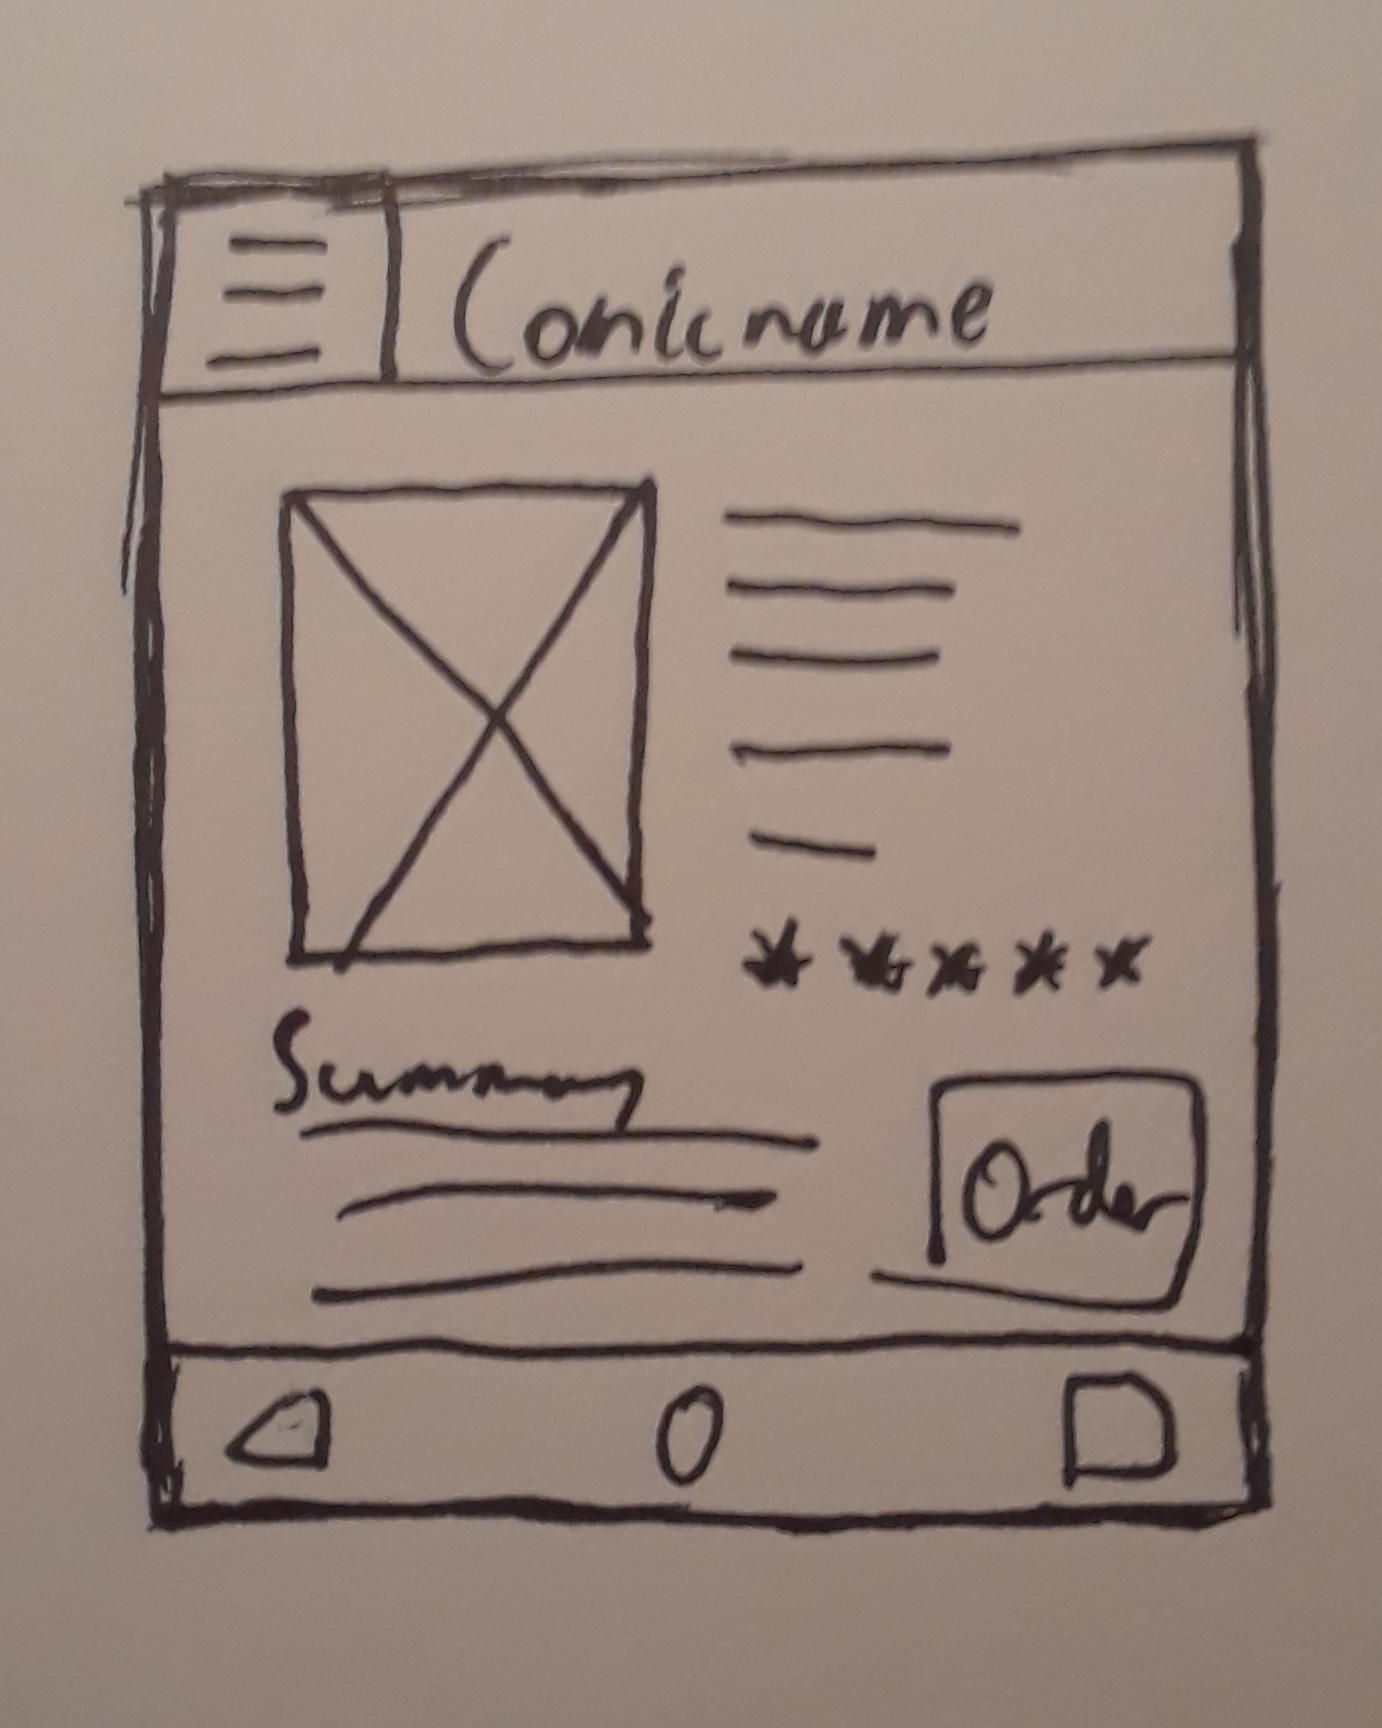 Comicname
Summary
Order